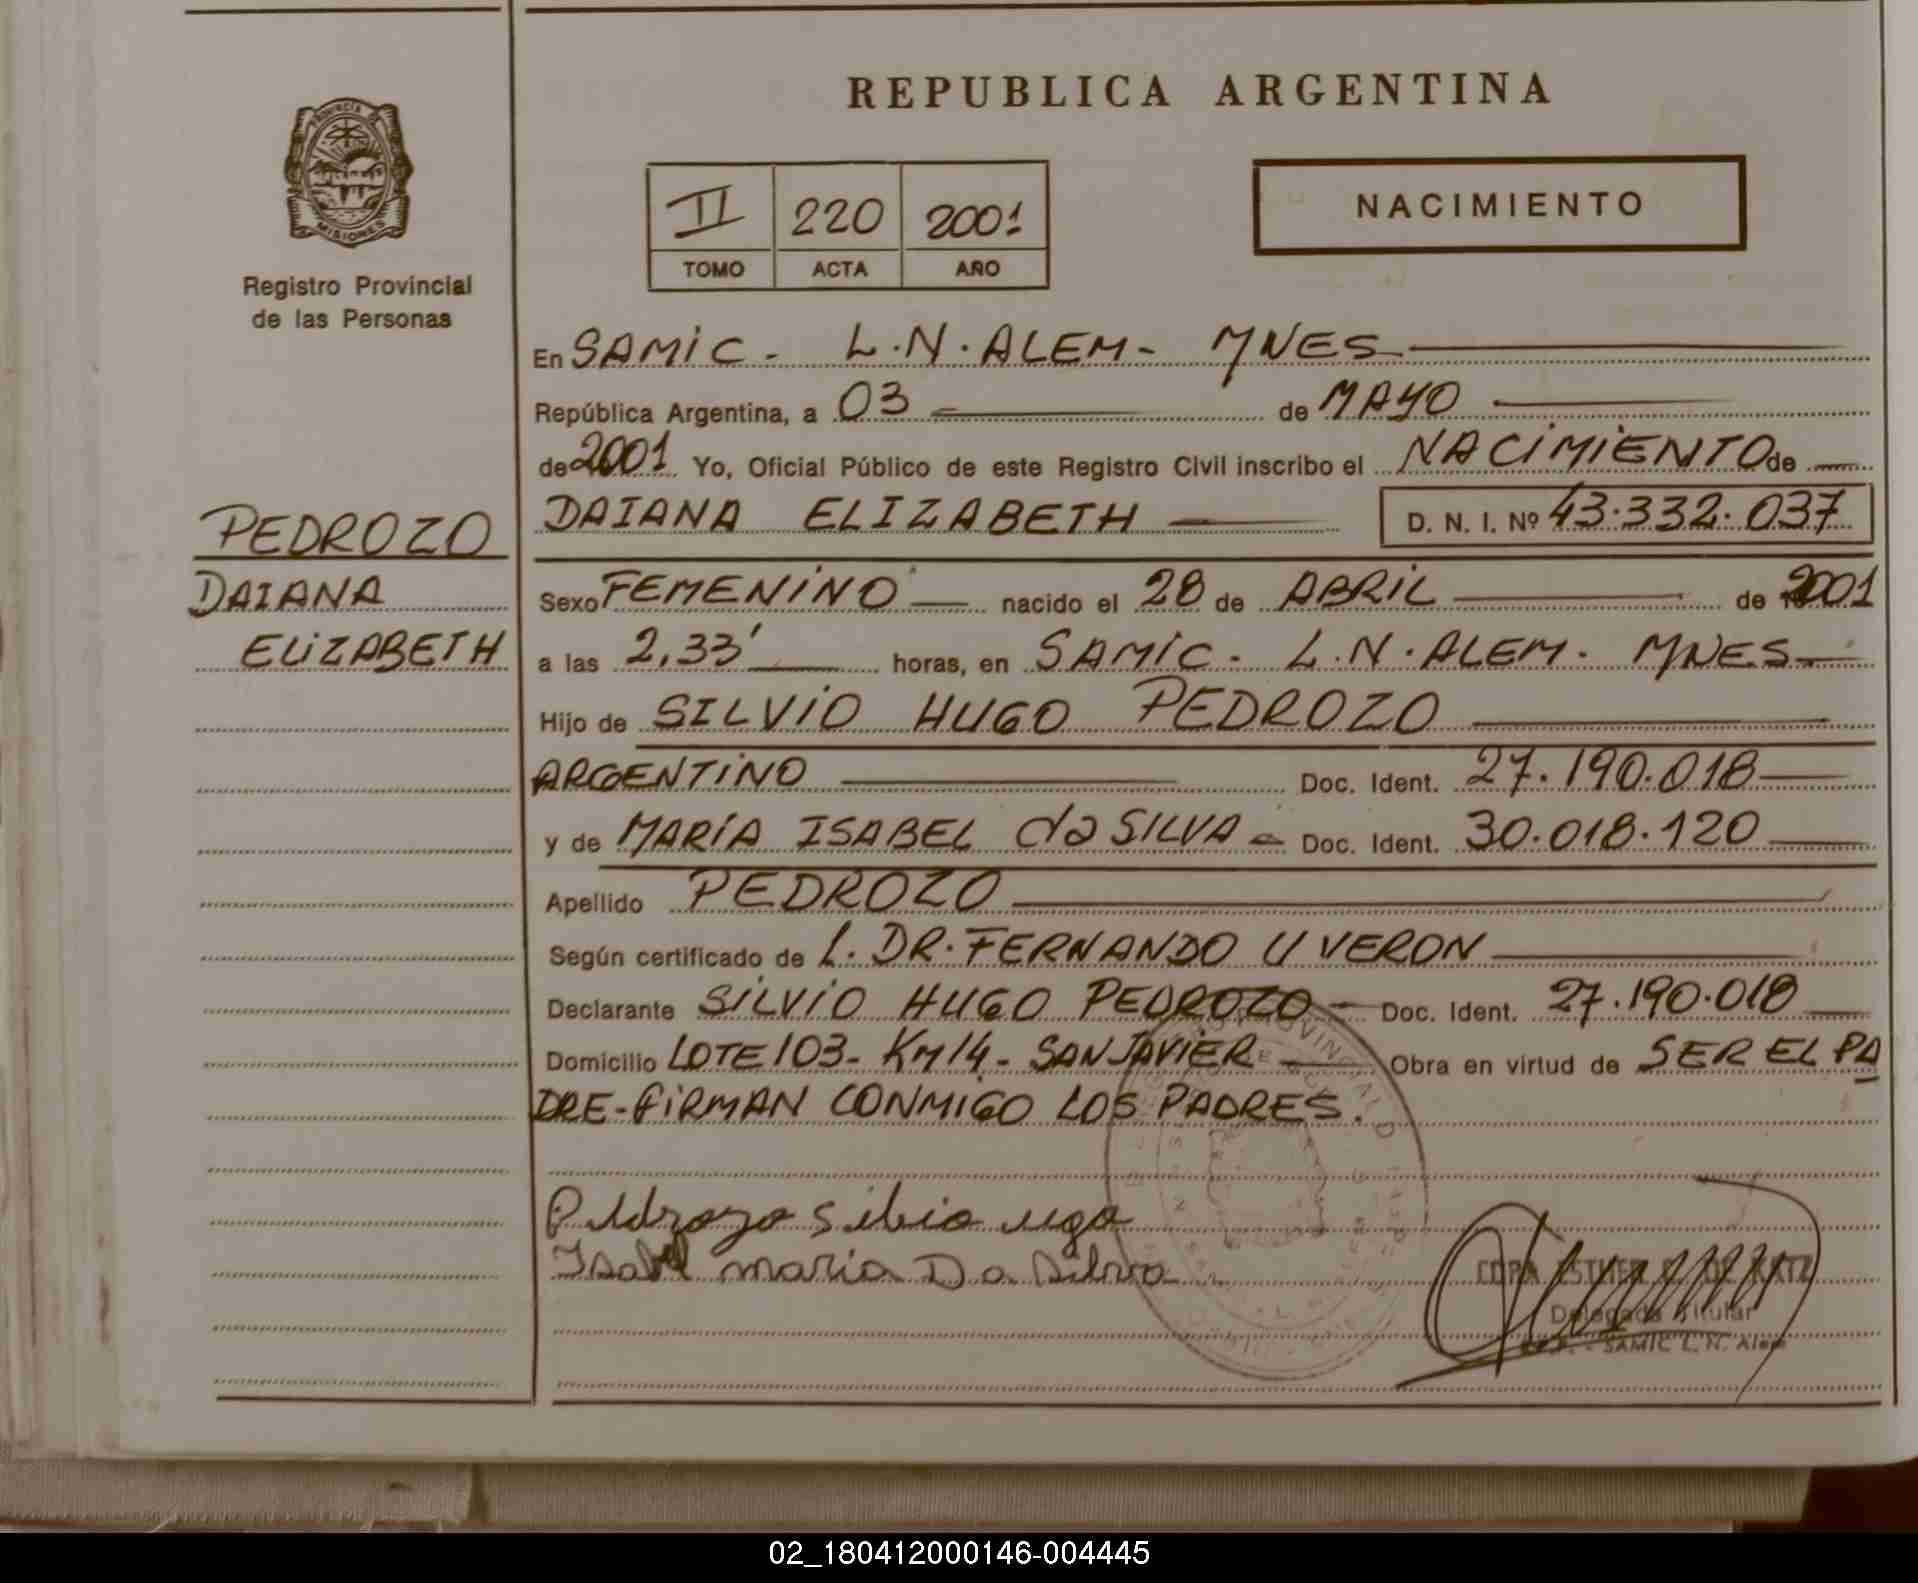 REPUBLICA ARGENTINA
PROVINCIA DE
MISIONES
Registro Provincial
de las Personas
II 220 2001
TOMO ACTA AÑO
NACIMIENTO
En SAMIC - L.N.ALEM - MNES
República Argentina, a 03 de MAYO
de 2001 Yo, Oficial Público de este Registro Civil inscribo el NACIMIENTO de
DAIANA ELIZABETH D. N. I. Nº 43.332.037
PEDROZO
DAIANA
ELIZABETH
Sexo FEMENINO nacido el 28 de ABRIL de 2001
a las 2,33' horas, en SAMIC - L.N.ALEM - MNES
Hijo de SILVIO HUGO PEDROZO
ARGENTINO Doc. Ident. 27.190.018
y de MARÍA ISABEL da SILVA Doc. Ident. 30.018.120
Apellido PEDROZO
Según certificado de L. DR. FERNANDO U VERON
Declarante SILVIO HUGO PEDROZO Doc. Ident. 27.190.018
Domicilio LOTE 103 - KM 14 - SAN JAVIER Obra en virtud de SER EL PA
DRE - FIRMAN CONMIGO LOS PADRES.
Pedrozo Silbio ugo
Isabel maria Da Silva
ESTHER
Delegada Titular
SAMIC L. N. Alem
02_180412000146-004445